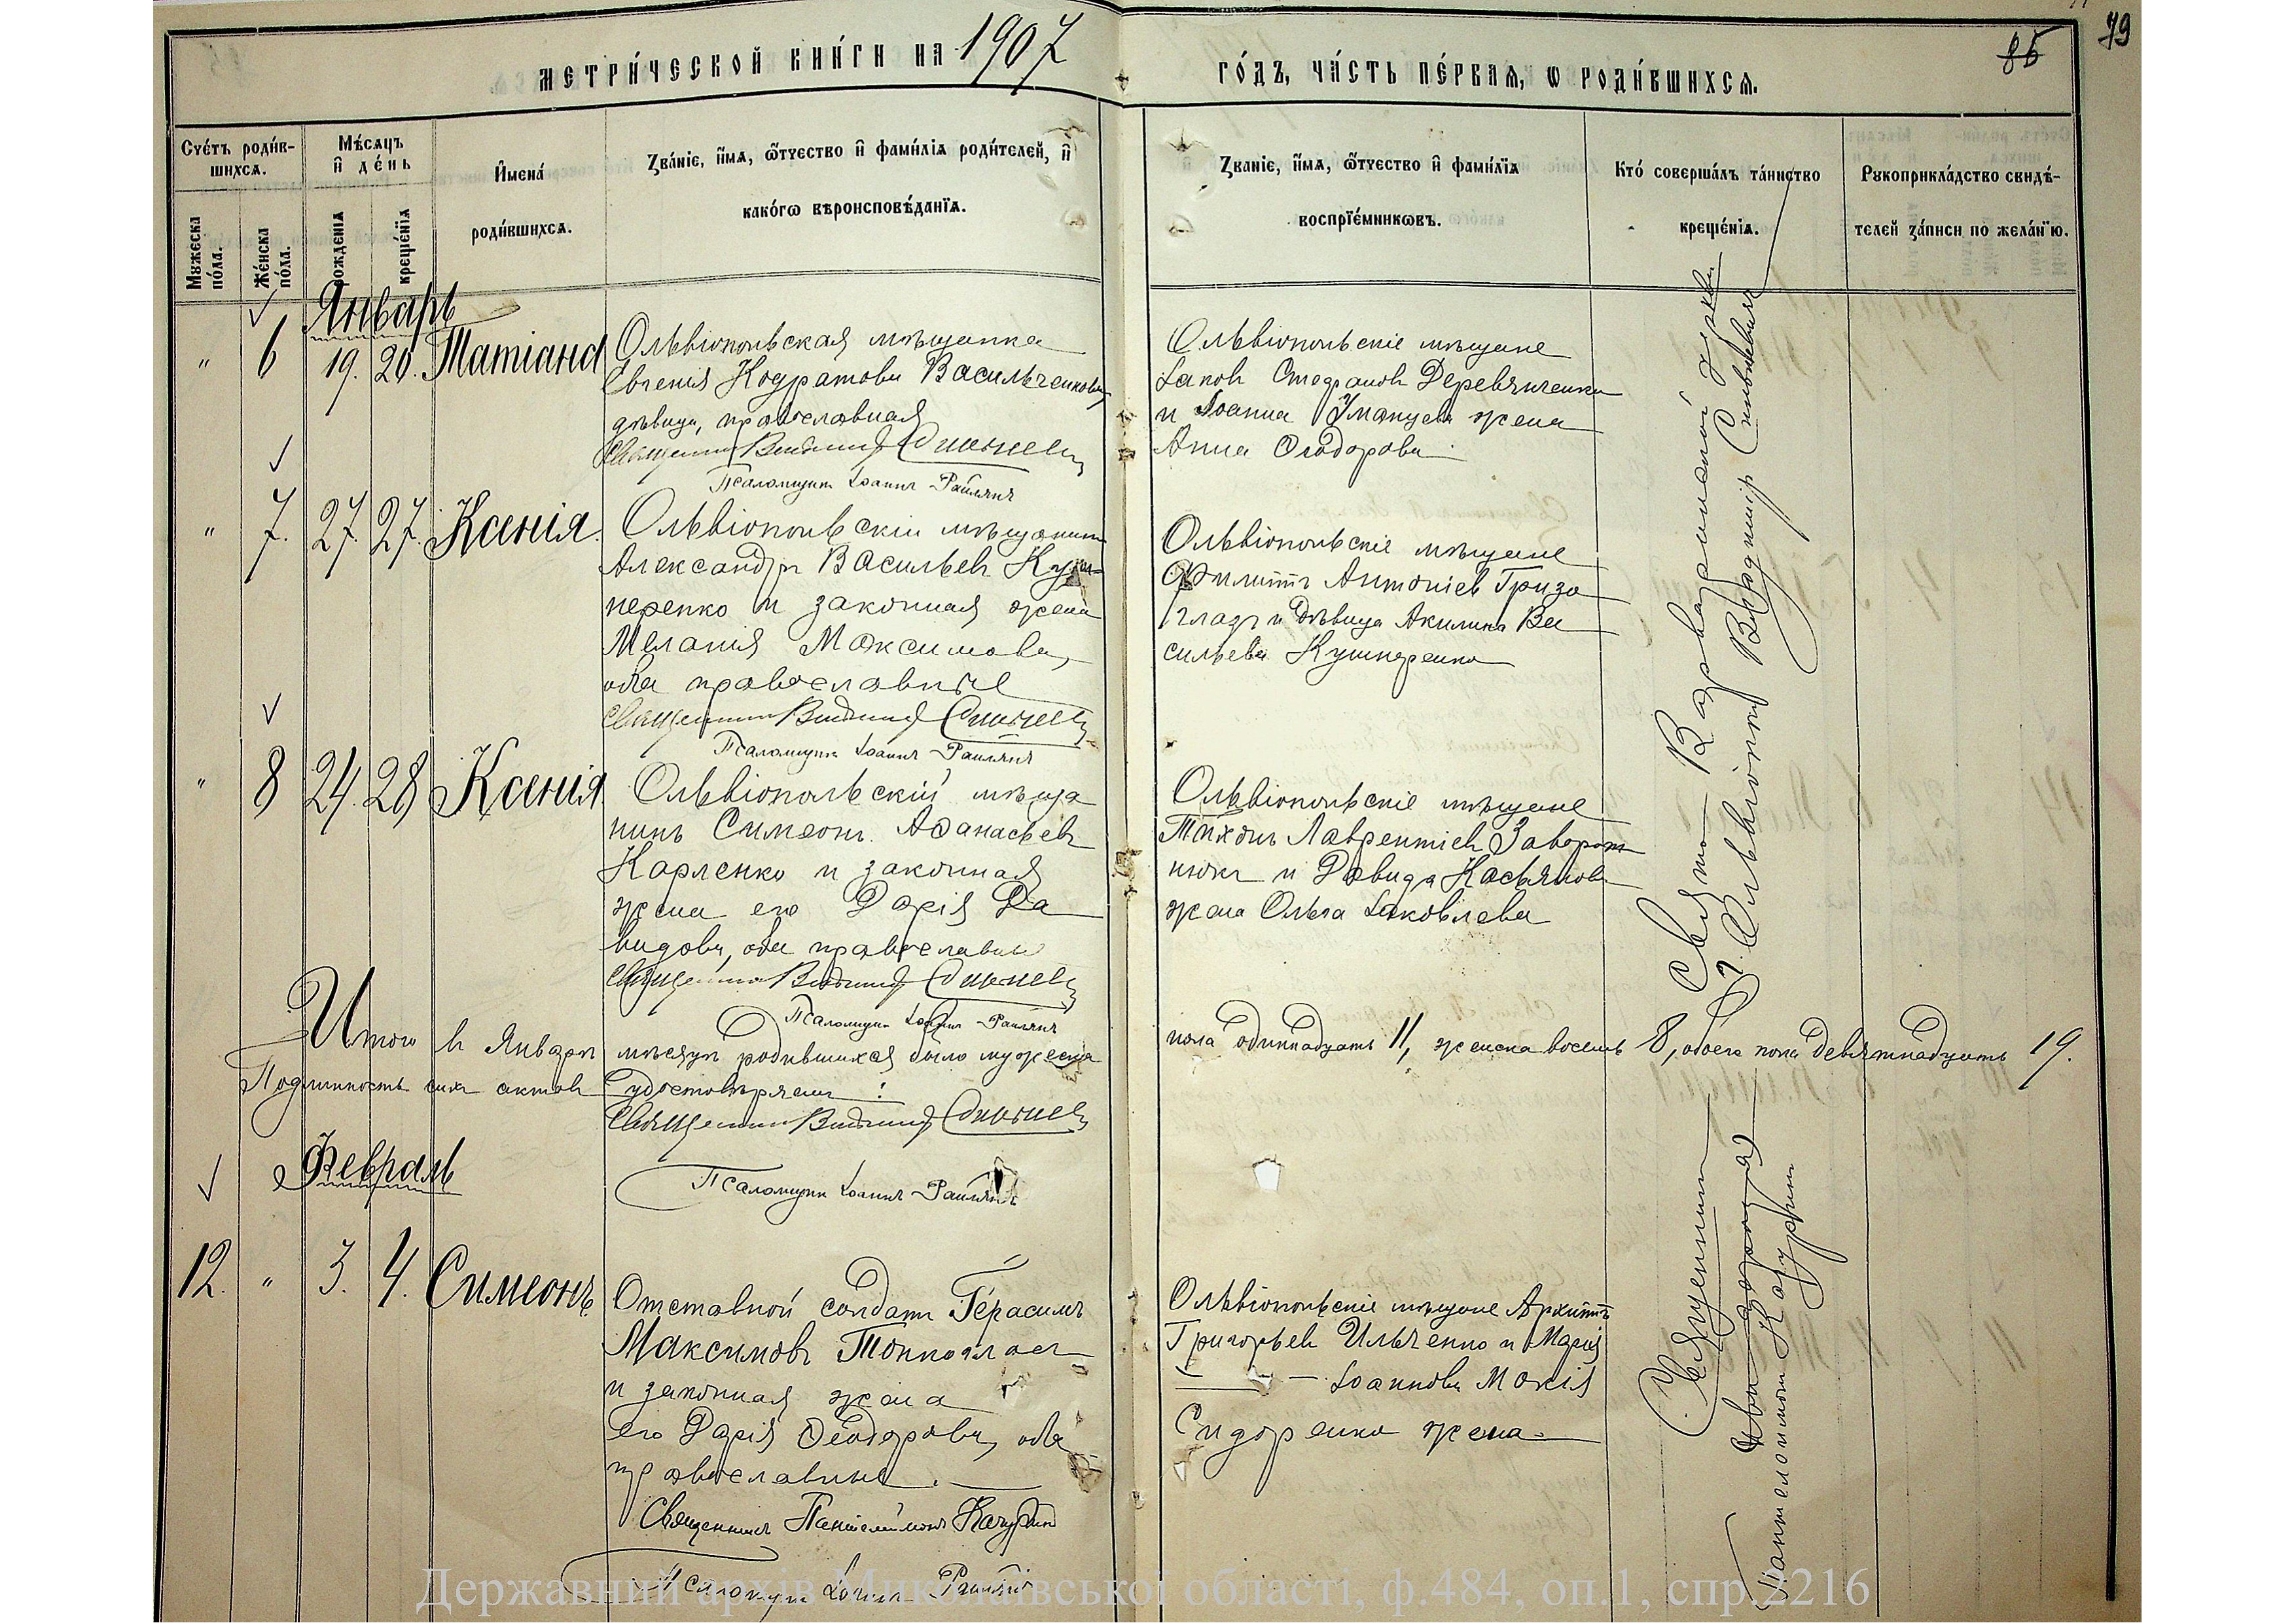 79
85
МЕТРИ́ЧЕСКОЙ КНИ́ГИ НА 1907 ГО́ДЪ, ЧА́СТЬ ПЕ́РВАѦ, Ѡ РОДИ́ВШИХСѦ.
Сче́тъ роди́в-
шихсѧ.
Мꙋжеска по́ла.
Же́нска по́ла.
Мѣ́сѧцъ
и҆ де́нь
рожденїѧ
креще́нїѧ
И҆мена́
роди́вшихсѧ.
Зва́нїе, и҆́мѧ, ѻ҆́тчество и҆ фами́лїѧ роди́телей, и҆
како́гѡ вѣроисповѣ́данїѧ.
Зва́нїе, и҆́мѧ, ѻ҆́тчество и҆ фами́лїѧ
воспрїе́мникѡвъ.
Кто́ соверша́лъ та́инство
креще́нїѧ.
Рꙋкоприкла́дство свидѣ́-
телей за́писи по жела́нїю.
Январь
" 6 19. 20. Татіана
Ольвіопольская мѣщанка
Евгенія Кодратова Васильченкова,
дѣвица, православная
Священник Владимир Синьневич
Псаломщик Іоаннъ Райлянъ
Ольвіопольскіе мѣщане
Іаковъ Стефановъ Деревянченко
и Іоанна Уманцева жена
Анна Ѳеодорова
" 7. 27. 27. Ксенія.
Ольвіопольскій мѣщанин
Александръ Васильевъ Куш-
неренко и законная жена
Меланія Максимова,
оба православные
Священник Владимир Синьневич
Псаломщик Іоаннъ Райлянъ
Ольвіопольскіе мѣщане
Филиппъ Антоніев Гризо
глазъ и дѣвица Акилина Ва
сильева Кушнеренко
" 8 24. 28 Ксенія
Ольвіопольскій мѣща
нинъ Симеонъ Аѳанасьевъ
Карленко и законная
жена его Дарія Да
видова, оба православные
Священник Владимир Синьневич
Псаломщик Іоаннъ Райлянъ
Ольвіопольскіе мѣщане
Тихонъ Лаврентіевъ Заворот
нюкъ и Давида Касьянова
жена Ольга Іаковлева
Свято-Варваринской церкви
г. Ольвіополя Владимір Синьневич
Итого въ Январѣ мѣсяцѣ родившихся было мужеска пола одиннадцать 11, женска восемь 8, обоего пола девятнадцать 19.
Подлинность сихъ актовъ удостовѣряемъ:
Священник Владимир Синьневич
Псаломщик Іоаннъ Райлянъ
Февраль
12. " 3. 4. Симеонъ
Отставной солдатъ Герасимъ
Максимовъ Тонкогласъ
и законная жена
его Дарія Ѳеодорова, оба
православные.
Священникъ Пантелеимонъ Качурин
Псаломщик Іоаннъ Райлянъ
Ольвіопольскіе мѣщане Архиппъ
Григорьевъ Ильченко и Марія
Іоаннова Мокія
Сидоренко жена
Священник
Пантелеимонъ Качурин
Державний архів Миколаївської області, ф.484, оп.1, спр.2216